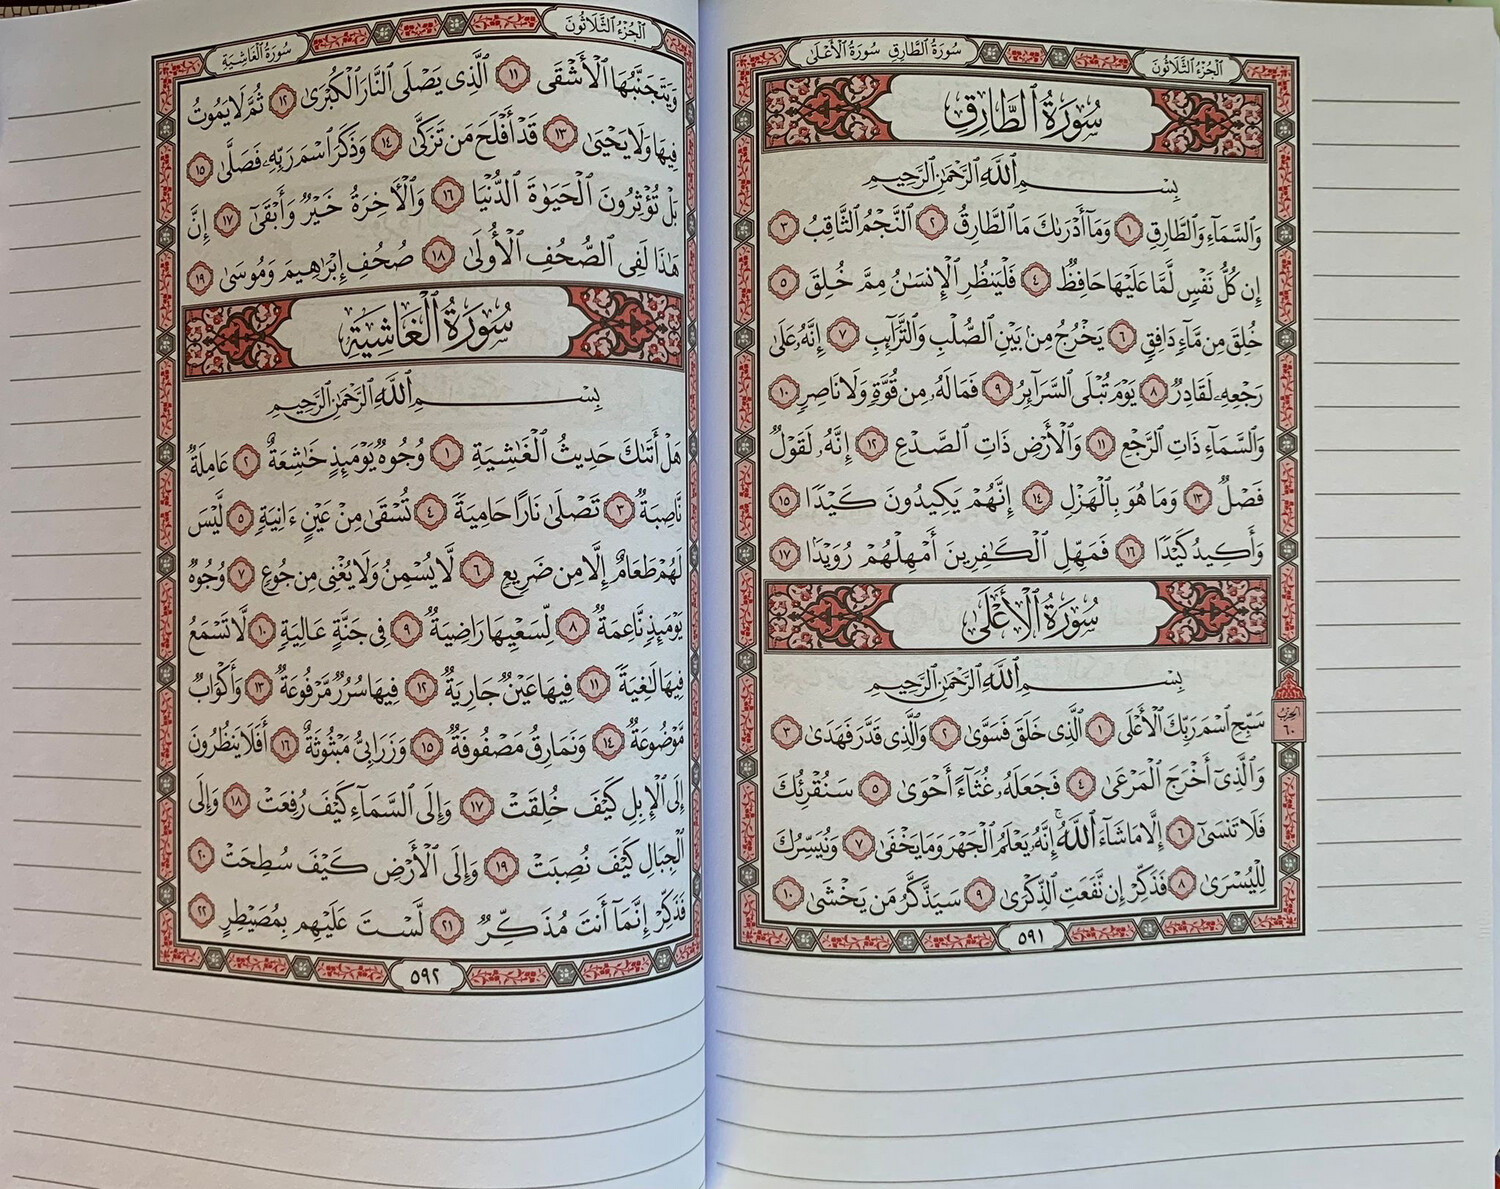 سُورَةُ الطَّارِقِ سُورَةُ الأَعْلَى
الجُزْءُ الثَّلَاثُونَ
سُورَةُ الطَّارِقِ
بِسْمِ ٱللَّهِ ٱلرَّحْمَٰنِ ٱلرَّحِيمِ
وَٱلسَّمَآءِ وَٱلطَّارِقِ ١ وَمَآ أَدْرَىٰكَ مَا ٱلطَّارِقُ ٢ ٱلنَّجْمُ ٱلثَّاقِبُ ٣
إِن كُلُّ نَفْسٍ لَّمَّا عَلَيْهَا حَافِظٌ ٤ فَلْيَنظُرِ ٱلْإِنسَٰنُ مِمَّ خُلِقَ ٥
خُلِقَ مِن مَّآءٍ دَافِقٍ ٦ يَخْرُجُ مِنۢ بَيْنِ ٱلصُّلْبِ وَٱلتَّرَآئِبِ ٧ إِنَّهُۥ عَلَىٰ
رَجْعِهِۦ لَقَادِرٌ ٨ يَوْمَ تُبْلَى ٱلسَّرَآئِرُ ٩ فَمَا لَهُۥ مِن قُوَّةٍ وَلَا نَاصِرٍ ١٠
وَٱلسَّمَآءِ ذَاتِ ٱلرَّجْعِ ١١ وَٱلْأَرْضِ ذَاتِ ٱلصَّدْعِ ١٢ إِنَّهُۥ لَقَوْلٌ
فَصْلٌ ١٣ وَمَا هُوَ بِٱلْهَزْلِ ١٤ إِنَّهُمْ يَكِيدُونَ كَيْدًا ١٥
وَأَكِيدُ كَيْدًا ١٦ فَمَهِّلِ ٱلْكَٰفِرِينَ أَمْهِلْهُمْ رُوَيْدًۢا ١٧
سُورَةُ الأَعْلَى
بِسْمِ ٱللَّهِ ٱلرَّحْمَٰنِ ٱلرَّحِيمِ
سَبِّحِ ٱسْمَ رَبِّكَ ٱلْأَعْلَى ١ ٱلَّذِى خَلَقَ فَسَوَّىٰ ٢ وَٱلَّذِى قَدَّرَ فَهَدَىٰ ٣
وَٱلَّذِىٓ أَخْرَجَ ٱلْمَرْعَىٰ ٤ فَجَعَلَهُۥ غُثَآءً أَحْوَىٰ ٥ سَنُقْرِئُكَ
فَلَا تَنسَىٰٓ ٦ إِلَّا مَا شَآءَ ٱللَّهُ ۚ إِنَّهُۥ يَعْلَمُ ٱلْجَهْرَ وَمَا يَخْفَىٰ ٧ وَنُيَسِّرُكَ
لِلْيُسْرَىٰ ٨ فَذَكِّرْ إِن نَّفَعَتِ ٱلذِّكْرَىٰ ٩ سَيَذَّكَّرُ مَن يَخْشَىٰ ١٠
الحِزْبُ
٦٠
٥٩١
الجُزْءُ الثَّلَاثُونَ
سُورَةُ الغَاشِيَةِ
وَيَتَجَنَّبُهَا ٱلْأَشْقَى ١١ ٱلَّذِى يَصْلَى ٱلنَّارَ ٱلْكُبْرَىٰ ١٢ ثُمَّ لَا يَمُوتُ
فِيهَا وَلَا يَحْيَىٰ ١٣ قَدْ أَفْلَحَ مَن تَزَكَّىٰ ١٤ وَذَكَرَ ٱسْمَ رَبِّهِۦ فَصَلَّىٰ ١٥
بَلْ تُؤْثِرُونَ ٱلْحَيَوٰةَ ٱلدُّنْيَا ١٦ وَٱلْءَاخِرَةُ خَيْرٌ وَأَبْقَىٰٓ ١٧ إِنَّ
هَٰذَا لَفِى ٱلصُّحُفِ ٱلْأُولَىٰ ١٨ صُحُفِ إِبْرَٰهِيمَ وَمُوسَىٰ ١٩
سُورَةُ الغَاشِيَةِ
بِسْمِ ٱللَّهِ ٱلرَّحْمَٰنِ ٱلرَّحِيمِ
هَلْ أَتَىٰكَ حَدِيثُ ٱلْغَٰشِيَةِ ١ وُجُوهٌ يَوْمَئِذٍ خَٰشِعَةٌ ٢ عَامِلَةٌ
نَّاصِبَةٌ ٣ تَصْلَىٰ نَارًا حَامِيَةً ٤ تُسْقَىٰ مِنْ عَيْنٍ ءَانِيَةٍ ٥ لَّيْسَ
لَهُمْ طَعَامٌ إِلَّا مِن ضَرِيعٍ ٦ لَّا يُسْمِنُ وَلَا يُغْنِى مِن جُوعٍ ٧ وُجُوهٌ
يَوْمَئِذٍ نَّاعِمَةٌ ٨ لِّسَعْيِهَا رَاضِيَةٌ ٩ فِى جَنَّةٍ عَالِيَةٍ ١٠ لَّا تَسْمَعُ
فِيهَا لَٰغِيَةً ١١ فِيهَا عَيْنٌ جَارِيَةٌ ١٢ فِيهَا سُرُرٌ مَّرْفُوعَةٌ ١٣ وَأَكْوَابٌ
مَّوْضُوعَةٌ ١٤ وَنَمَارِقُ مَصْفُوفَةٌ ١٥ وَزَرَابِىُّ مَبْثُوثَةٌ ١٦ أَفَلَا يَنظُرُونَ
إِلَى ٱلْإِبِلِ كَيْفَ خُلِقَتْ ١٧ وَإِلَى ٱلسَّمَآءِ كَيْفَ رُفِعَتْ ١٨ وَإِلَى
ٱلْجِبَالِ كَيْفَ نُصِبَتْ ١٩ وَإِلَى ٱلْأَرْضِ كَيْفَ سُطِحَتْ ٢٠
فَذَكِّرْ إِنَّمَآ أَنتَ مُذَكِّرٌ ٢١ لَّسْتَ عَلَيْهِم بِمُصَيْطِرٍ ٢٢
٥٩٢